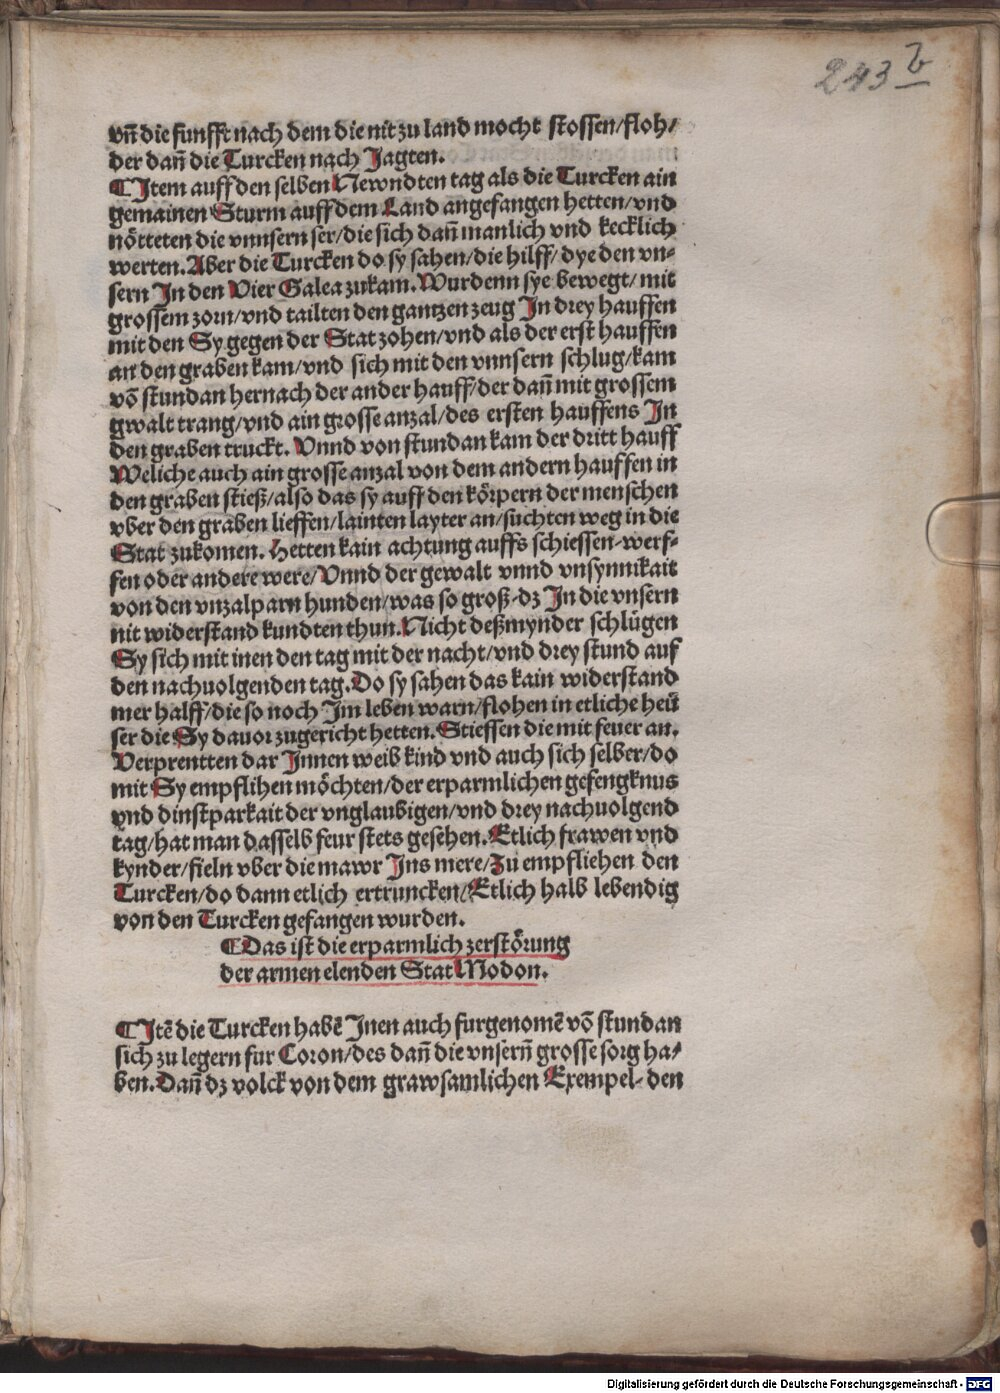 243 b
vn̄ die funfft nach dem die nit zu land mocht stossen/floh/
der dan̄ die Turcken nach Jagten.
¶Item auff den selben Newndten tag als die Turcken ain
gemainen Sturm auff dem Land angefangen hetten/vnd
nötteten die vnnsern ser/die sich dan̄ manlich vnd kecklich
werten. Aber die Turcken do sy sahen/die hilff/dye den vn-
sern In den Vier Galea zukam. Wurdenn sye bewegt/mit
grossem zorn/vnd tailten den gantzen zeug In drey hauffen
mit den Sy gegen der Stat zohen/vnd als der erst hauffen
an den graben kam/vnd sich mit den vnnsern schlug/kam
vō stundan hernach der ander hauff/der dan̄ mit grossem
gwalt trang/vnd ain grosse anzal/des ersten hauffens In
den graben truckt. Vnnd von stundan kam der dritt hauff
Weliche auch ain grosse anzal von dem andern hauffen in
den graben stieß/also das sy auff den körpern der menschen
vber den graben lieffen/lainten layter an/suchten weg in die
Stat zukomen. Hetten kain achtung auffs schiessen-werf-
fen oder andere were/Vnnd der gewalt vnnd vnsynnikait
von den vnzalparn hunden/was so groß-dz In die vnsern
nit widerstand kundten thun. Nicht deßmynder schlügen
Sy sich mit inen den tag mit der nacht/vnd drey stund auf
den nachuolgenden tag. Do sy sahen das kain widerstand
mer halff/die so noch Im leben warn/flohen in etliche heü
ser die Sy dauor zugericht hetten. Stieffen die mit feuer an.
Verprentten dar Innen weib kind vnd auch sich selber/do
mit Sy empflihen möchten/der erparmlichen gefengknus
vnd dinstparkait der vnglaubigen/vnd drey nachuolgend
tag/hat man dasselb feur stets gesehen. Etlich frawen vnd
kynder/fieln vber die mawr Ins mere/Zu empfliehen den
Turcken/do dann etlich ertruncken/Etlich halb lebendig
von den Turcken gefangen wurden.
¶Das ist die erparmlich zerstörung
der armen elenden Stat Modon.
¶Itē die Turcken habē Inen auch furgenomē vō stundan
sich zu legern fur Coron/des dan̄ die vnsern̄ grosse sorg ha-
ben. Dan̄ dz volck von dem grawsamlichen Exempel-den
Digitalisierung gefördert durch die Deutsche Forschungsgemeinschaft - DFG